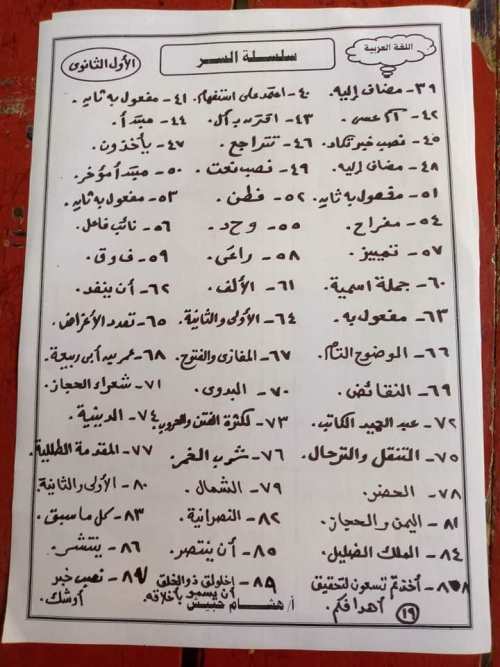 اللغة العربية
سلسلة السر
الأول الثانوى
٣٩- مضاف إليه. ٤٠- اعتمد على استفهام. ٤١- مفعول به ثانٍ.
٤٢- عسى. ٤٣- اقترن بـ أل. ٤٤- مبتدأ.
٤٥- نصب خبر تكاد. ٤٦- تتراجع. ٤٧- يأخذون.
٤٨- مضاف إليه. ٤٩- نصب نعت. ٥٠- مبتدأ مؤخر.
٥١- مفعول به ثانٍ. ٥٢- فطن. ٥٣- مفعول به ثانٍ.
٥٤- مفراح. ٥٥- وحد. ٥٦- نائب فاعل.
٥٧- تمييز. ٥٨- راعَى. ٥٩- فاوق.
٦٠- جملة اسمية. ٦١- الألف. ٦٢- أن ينفد.
٦٣- مفعول به. ٦٤- الأولى والثانية. ٦٥- تعدد الأغراض.
٦٦- الموضوع التام. ٦٧- المغازى والفتوح. ٦٨- عمر بن أبى ربيعة.
٦٩- النقائض. ٧٠- البدوى. ٧١- شعراء الحجاز.
٧٢- عبد الحميد الكاتب. ٧٣- لكثرة الفتن والحروب. ٧٤- الدينية.
٧٥- التنقل والترحال. ٧٦- شرب الخمر. ٧٧- المقدمة الطللية.
٧٨- الحضر. ٧٩- الشمال. ٨٠- الأولى والثانية.
٨١- اليمن والحجاز. ٨٢- النصرانية. ٨٣- كل ما سبق.
٨٤- الملك الضليل. ٨٥- أن ينتصر. ٨٦- ينتشر.
٨٨- أخذتم تسعون لتحقيق أهدافكم. ٨٩- إخلولق ذو الخلق أن يسمو بأخلاقه. ٨٧- نصب خبر أوشك.
١٩
أ/ هشام حبيس